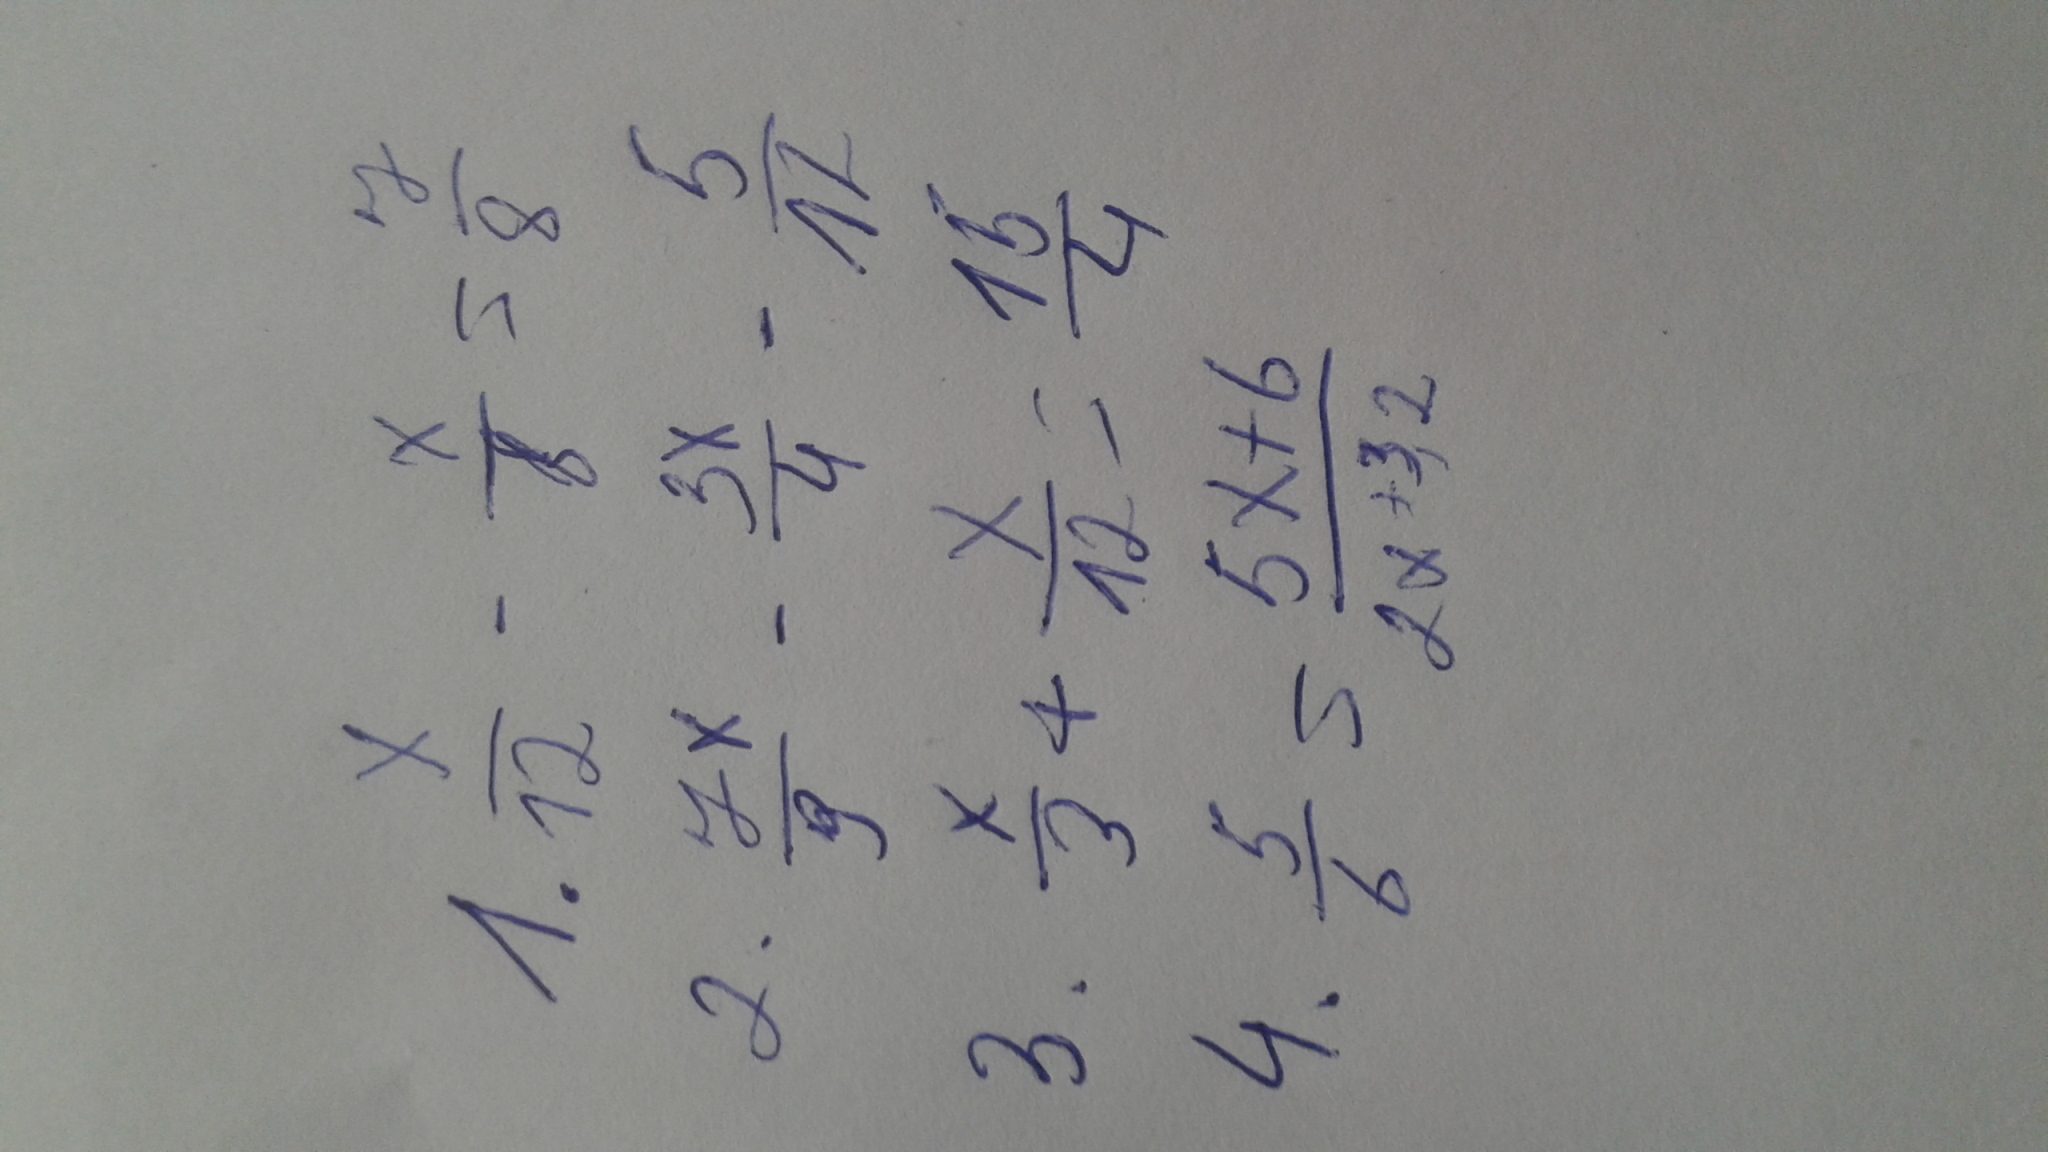 1. x/12 - x/8 = 7/8
2. 7x/9 - 3x/4 - 5/12
3. x/3 + x/12 = 15/4
4. 5/6 = 5x+6/2x+3,2